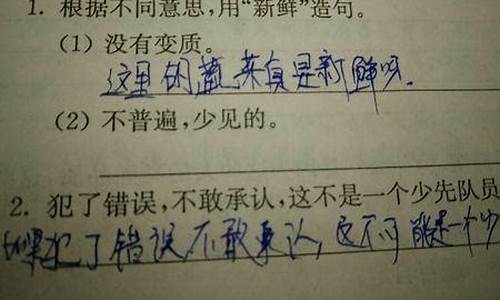 1. 根据不同意思,用“新鲜”造句。
(1) 没有变质。
这里的蔬菜真是新鲜呀.
(2) 不普遍,少见的。
2. 犯了错误,不敢承认,这不是一个少先队员
如果犯了错误,不敢承认,这不可能是一个少